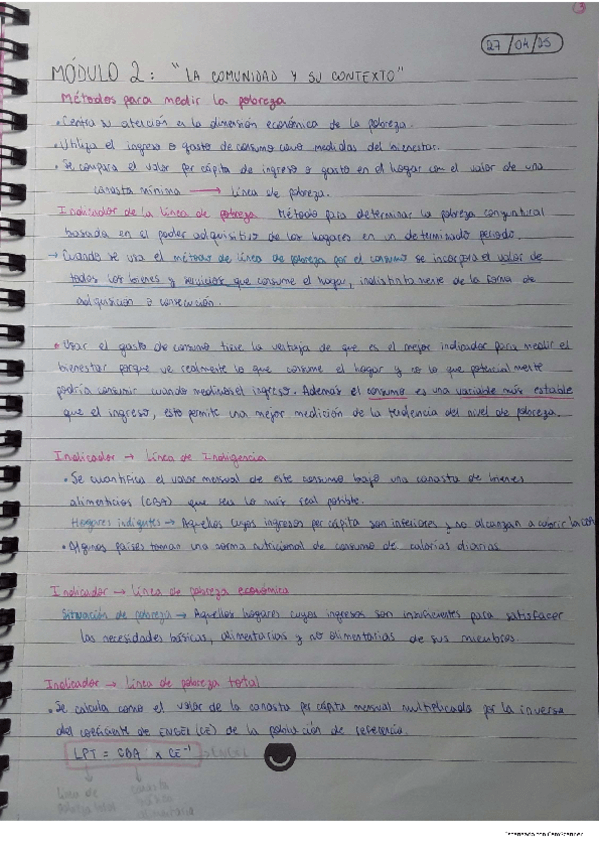 3
27/04/25
MÓDULO 2: "LA COMUNIDAD Y SU CONTEXTO"
Métodos para medir la pobreza
• Centra su atención en la dimensión económica de la pobreza.
• Utiliza el ingreso o gasto de consumo como medidas del bienestar.
• Se compara el valor per cápita de ingreso o gasto en el hogar con el valor de una
canasta mínima → línea de pobreza.
Indicador de la línea de pobreza Método para determinar la pobreza coyuntural
basada en el poder adquisitivo de los hogares en un determinado periodo.
→ Cuando se usa el método de línea de pobreza por el consumo se incorpora el valor de
todos los bienes y servicios que consume el hogar, indistintamente de la forma de
adquisición o consecución.
• Usar el gasto de consumo tiene la ventaja de que es el mejor indicador para medir el
bienestar porque ve realmente lo que consume el hogar y no lo que potencialmente
podría consumir cuando medimos el ingreso. Además el consumo es una variable más estable
que el ingreso, esto permite una mejor medición de la tendencia del nivel de pobreza.
Indicador → Línea de Indigencia
• Se cuantifica el valor mensual de este consumo bajo una canasta de bienes
alimenticios (CBA) que sea lo más real posible.
Hogares indigentes → Aquellos cuyos ingresos per cápita son inferiores y no alcanzan a cubrir la CBA
• Algunos países toman una norma nutricional de consumo de calorías diarias
Indicador → línea de pobreza económica
Situación de pobreza → Aquellos hogares cuyos ingresos son insuficientes para satisfacer
las necesidades básicas, alimentarias y no alimentarias de sus miembros.
Indicador → línea de pobreza total
• Se calcula como el valor de la canasta per cápita mensual multiplicada por la inversa
del coeficiente de ENGEL (CE) de la población de referencia.
LPT = CBA x CE⁻¹
línea de canasta
pobreza total básica
alimentaria